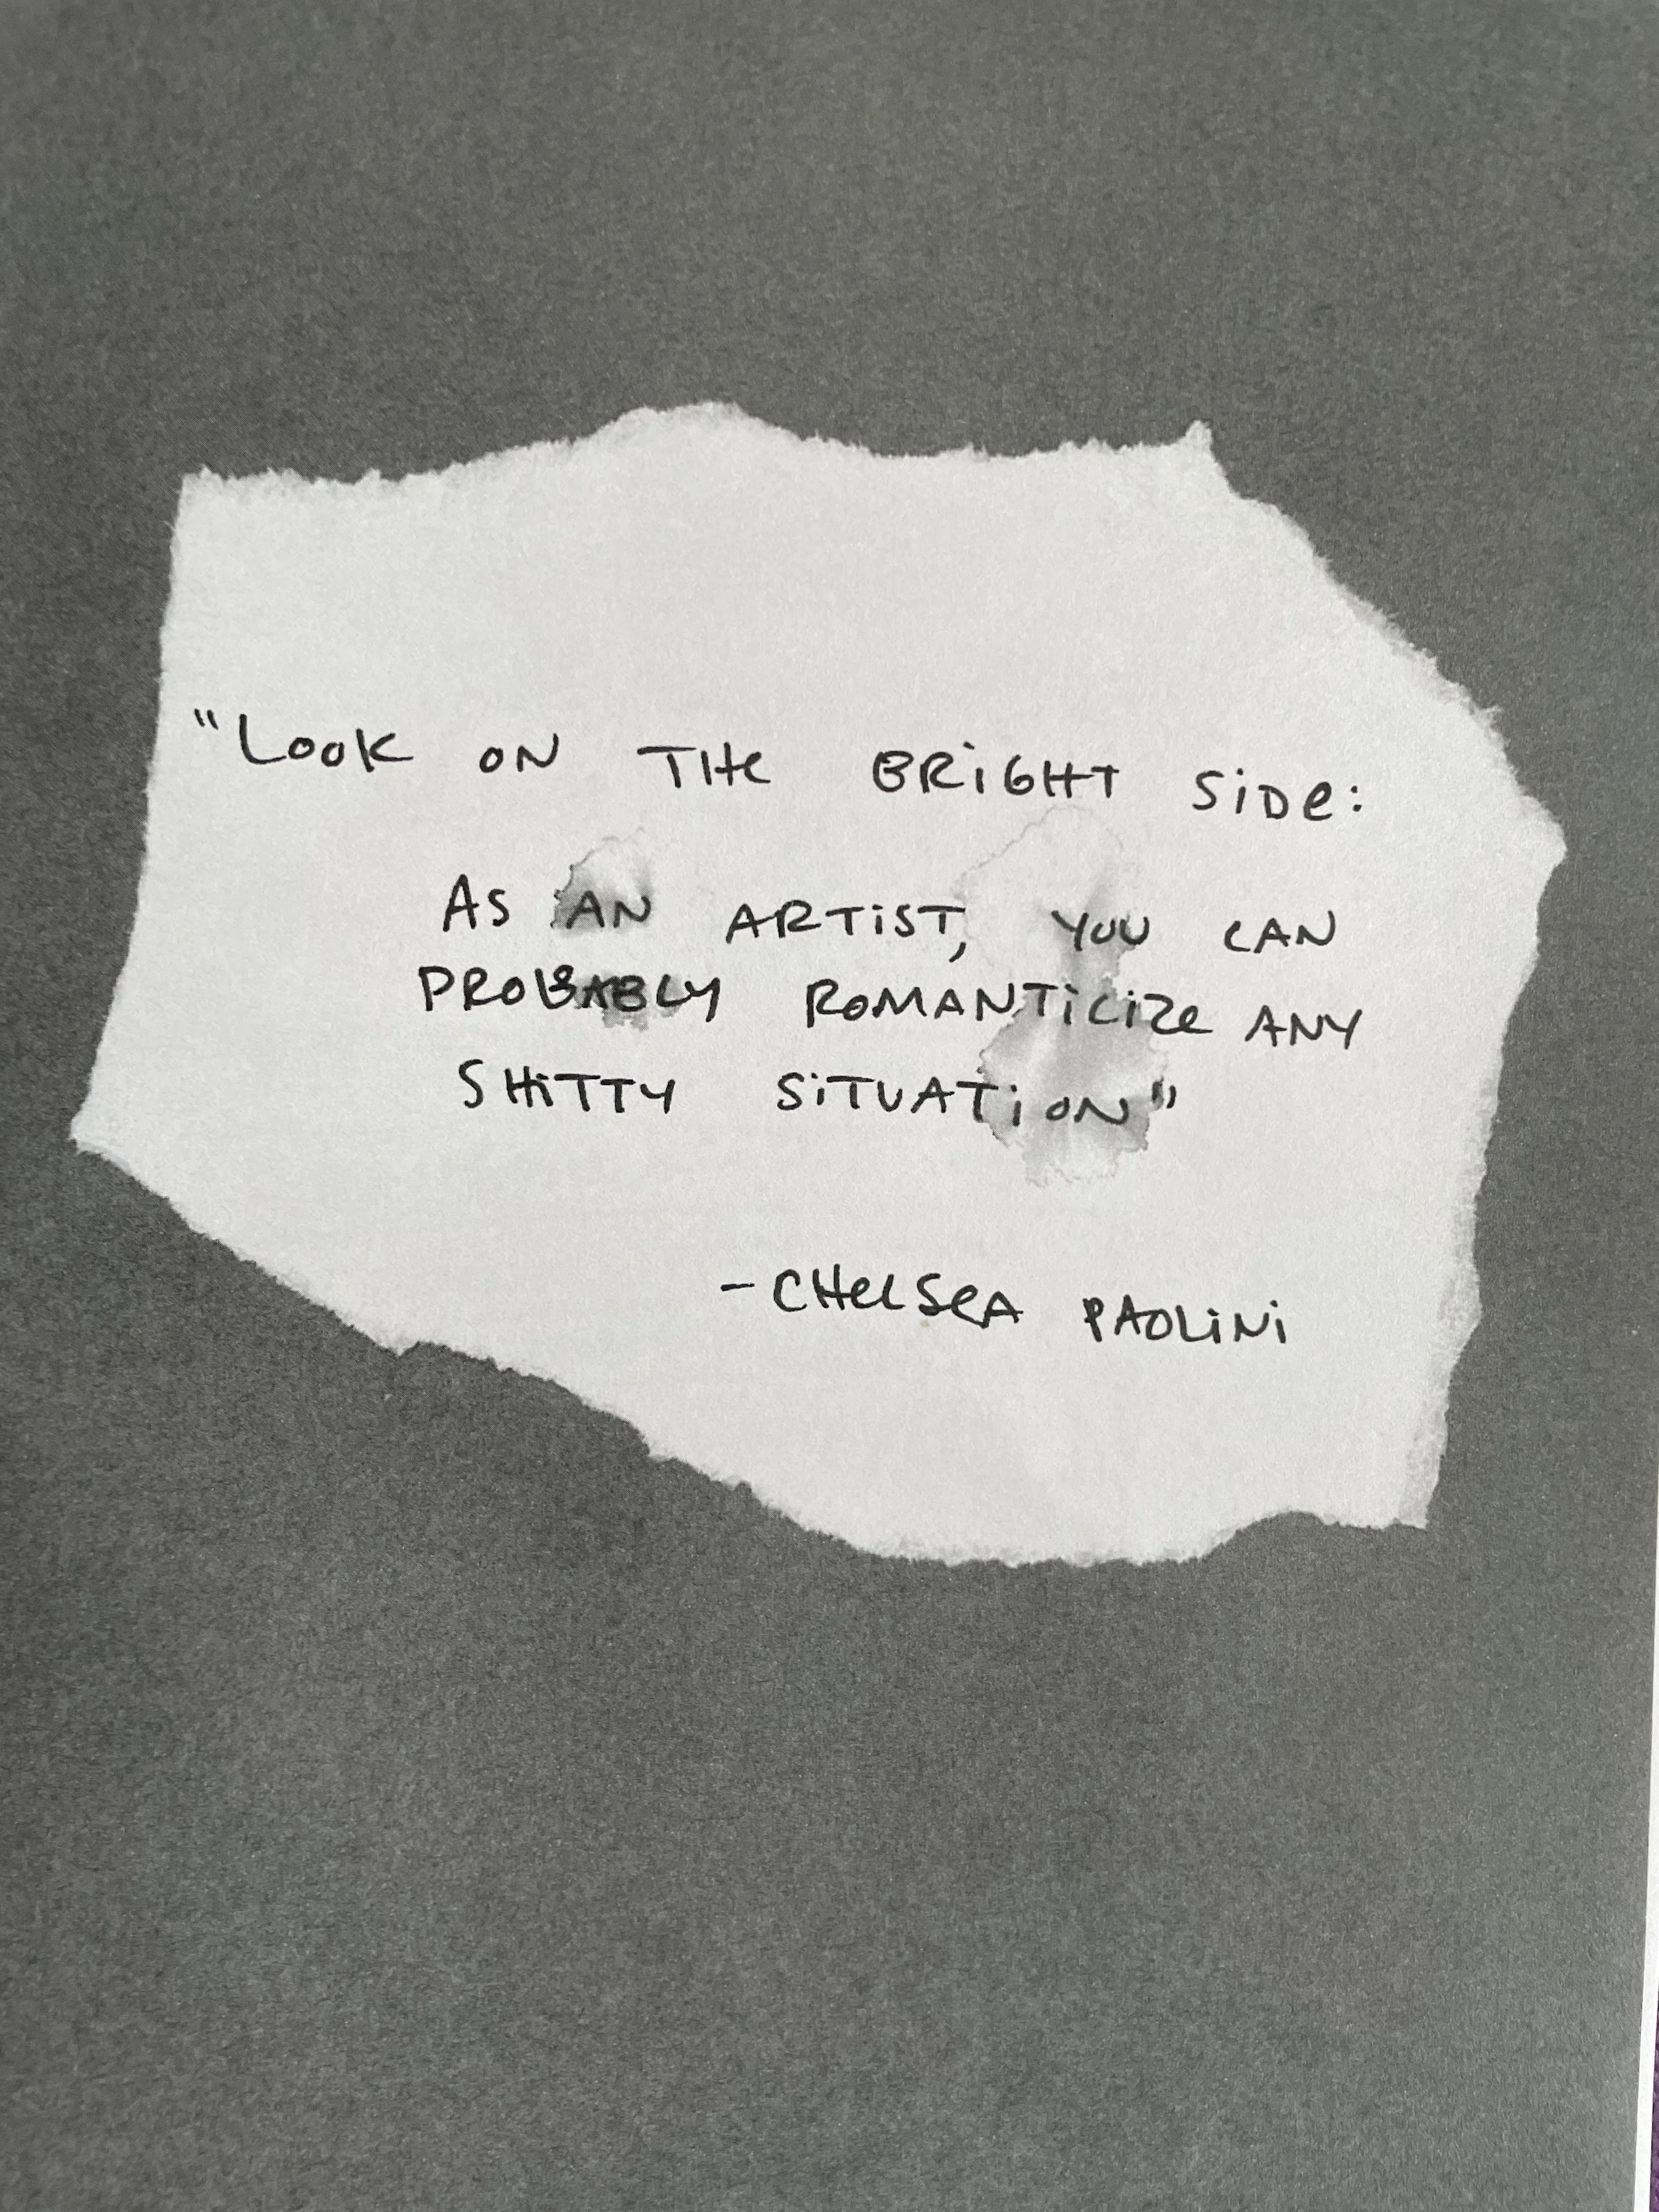 "LOOK ON THE BRiGHT SiDe:
AS AN ARTiST, YOU CAN
PROBABLY ROMANTiCiZe ANY
SHiTTY SiTUATiON"
-CHeLSeA PAOLiNi